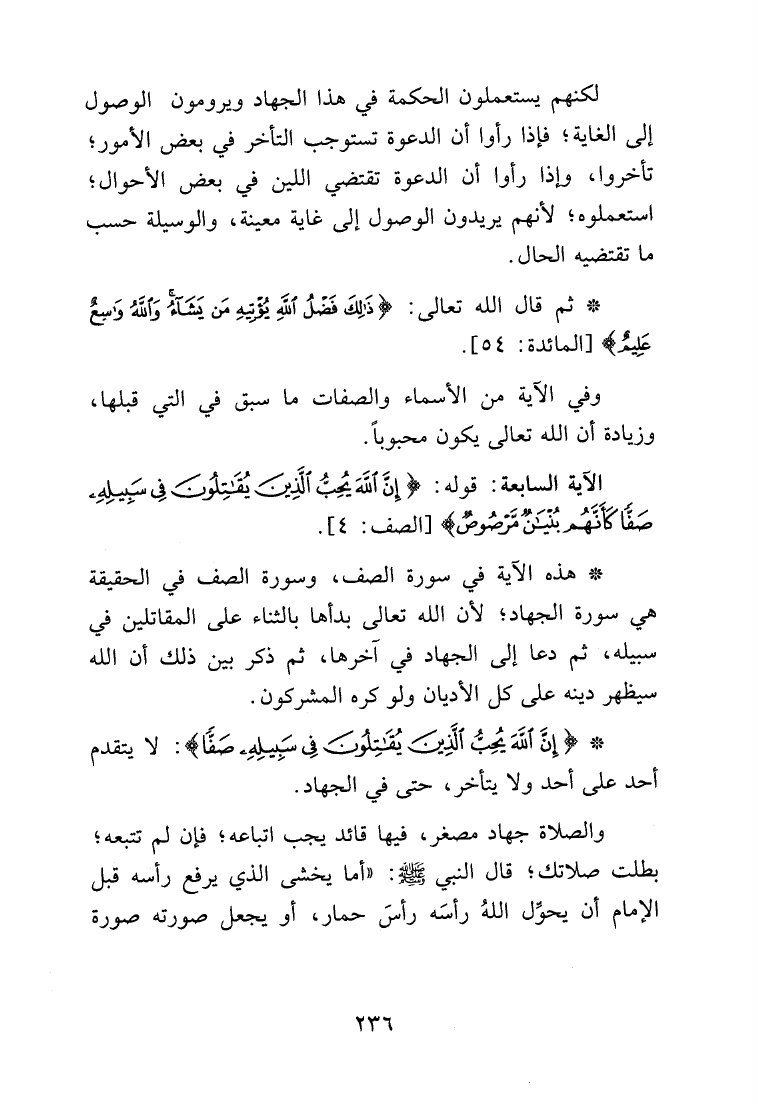 لكنهم يستعملون الحكمة في هذا الجهاد ويرومون الوصول
إلى الغاية؛ فإذا رأوا أن الدعوة تستوجب التأخر في بعض الأمور؛
تأخروا، وإذا رأوا أن الدعوة تقتضي اللين في بعض الأحوال؛
استعملوه؛ لأنهم يريدون الوصول إلى غاية معينة، والوسيلة حسب
ما تقتضيه الحال.
* ثم قال الله تعالى: ﴿ذَٰلِكَ فَضْلُ ٱللَّهِ يُؤْتِيهِ مَن يَشَآءُ ۚ وَٱللَّهُ وَٰسِعٌ
عَلِيمٌ﴾ [المائدة: ٥٤].
وفي الآية من الأسماء والصفات ما سبق في التي قبلها،
وزيادة أن الله تعالى يكون محبوباً.
الآية السابعة: قوله: ﴿إِنَّ ٱللَّهَ يُحِبُّ ٱلَّذِينَ يُقَٰتِلُونَ فِى سَبِيلِهِۦ
صَفًّا كَأَنَّهُم بُنْيَٰنٌ مَّرْصُوصٌ﴾ [الصف: ٤].
* هذه الآية في سورة الصف، وسورة الصف في الحقيقة
هي سورة الجهاد؛ لأن الله تعالى بدأها بالثناء على المقاتلين في
سبيله، ثم دعا إلى الجهاد في آخرها، ثم ذكر بين ذلك أن الله
سيظهر دينه على كل الأديان ولو كره المشركون.
* ﴿إِنَّ ٱللَّهَ يُحِبُّ ٱلَّذِينَ يُقَٰتِلُونَ فِى سَبِيلِهِۦ صَفًّا﴾: لا يتقدم
أحد على أحد ولا يتأخر، حتى في الجهاد.
والصلاة جهاد مصغر، فيها قائد يجب اتباعه؛ فإن لم تتبعه؛
بطلت صلاتك؛ قال النبي ﷺ: «أما يخشى الذي يرفع رأسه قبل
الإمام أن يحوِّل اللهُ رأسَه رأسَ حمار، أو يجعل صورته صورة
٢٣٦